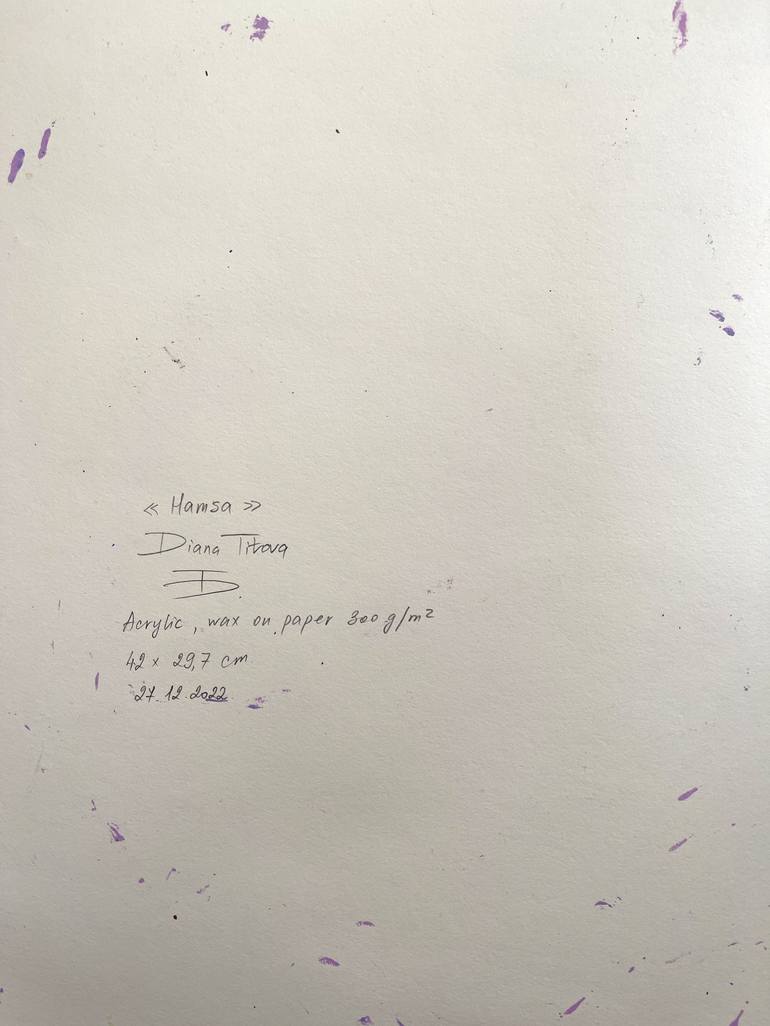 « Hamsa »
Diana Titova
Acrylic, wax on paper 300 g/m²
42 x 29,7 cm
27.12.2022